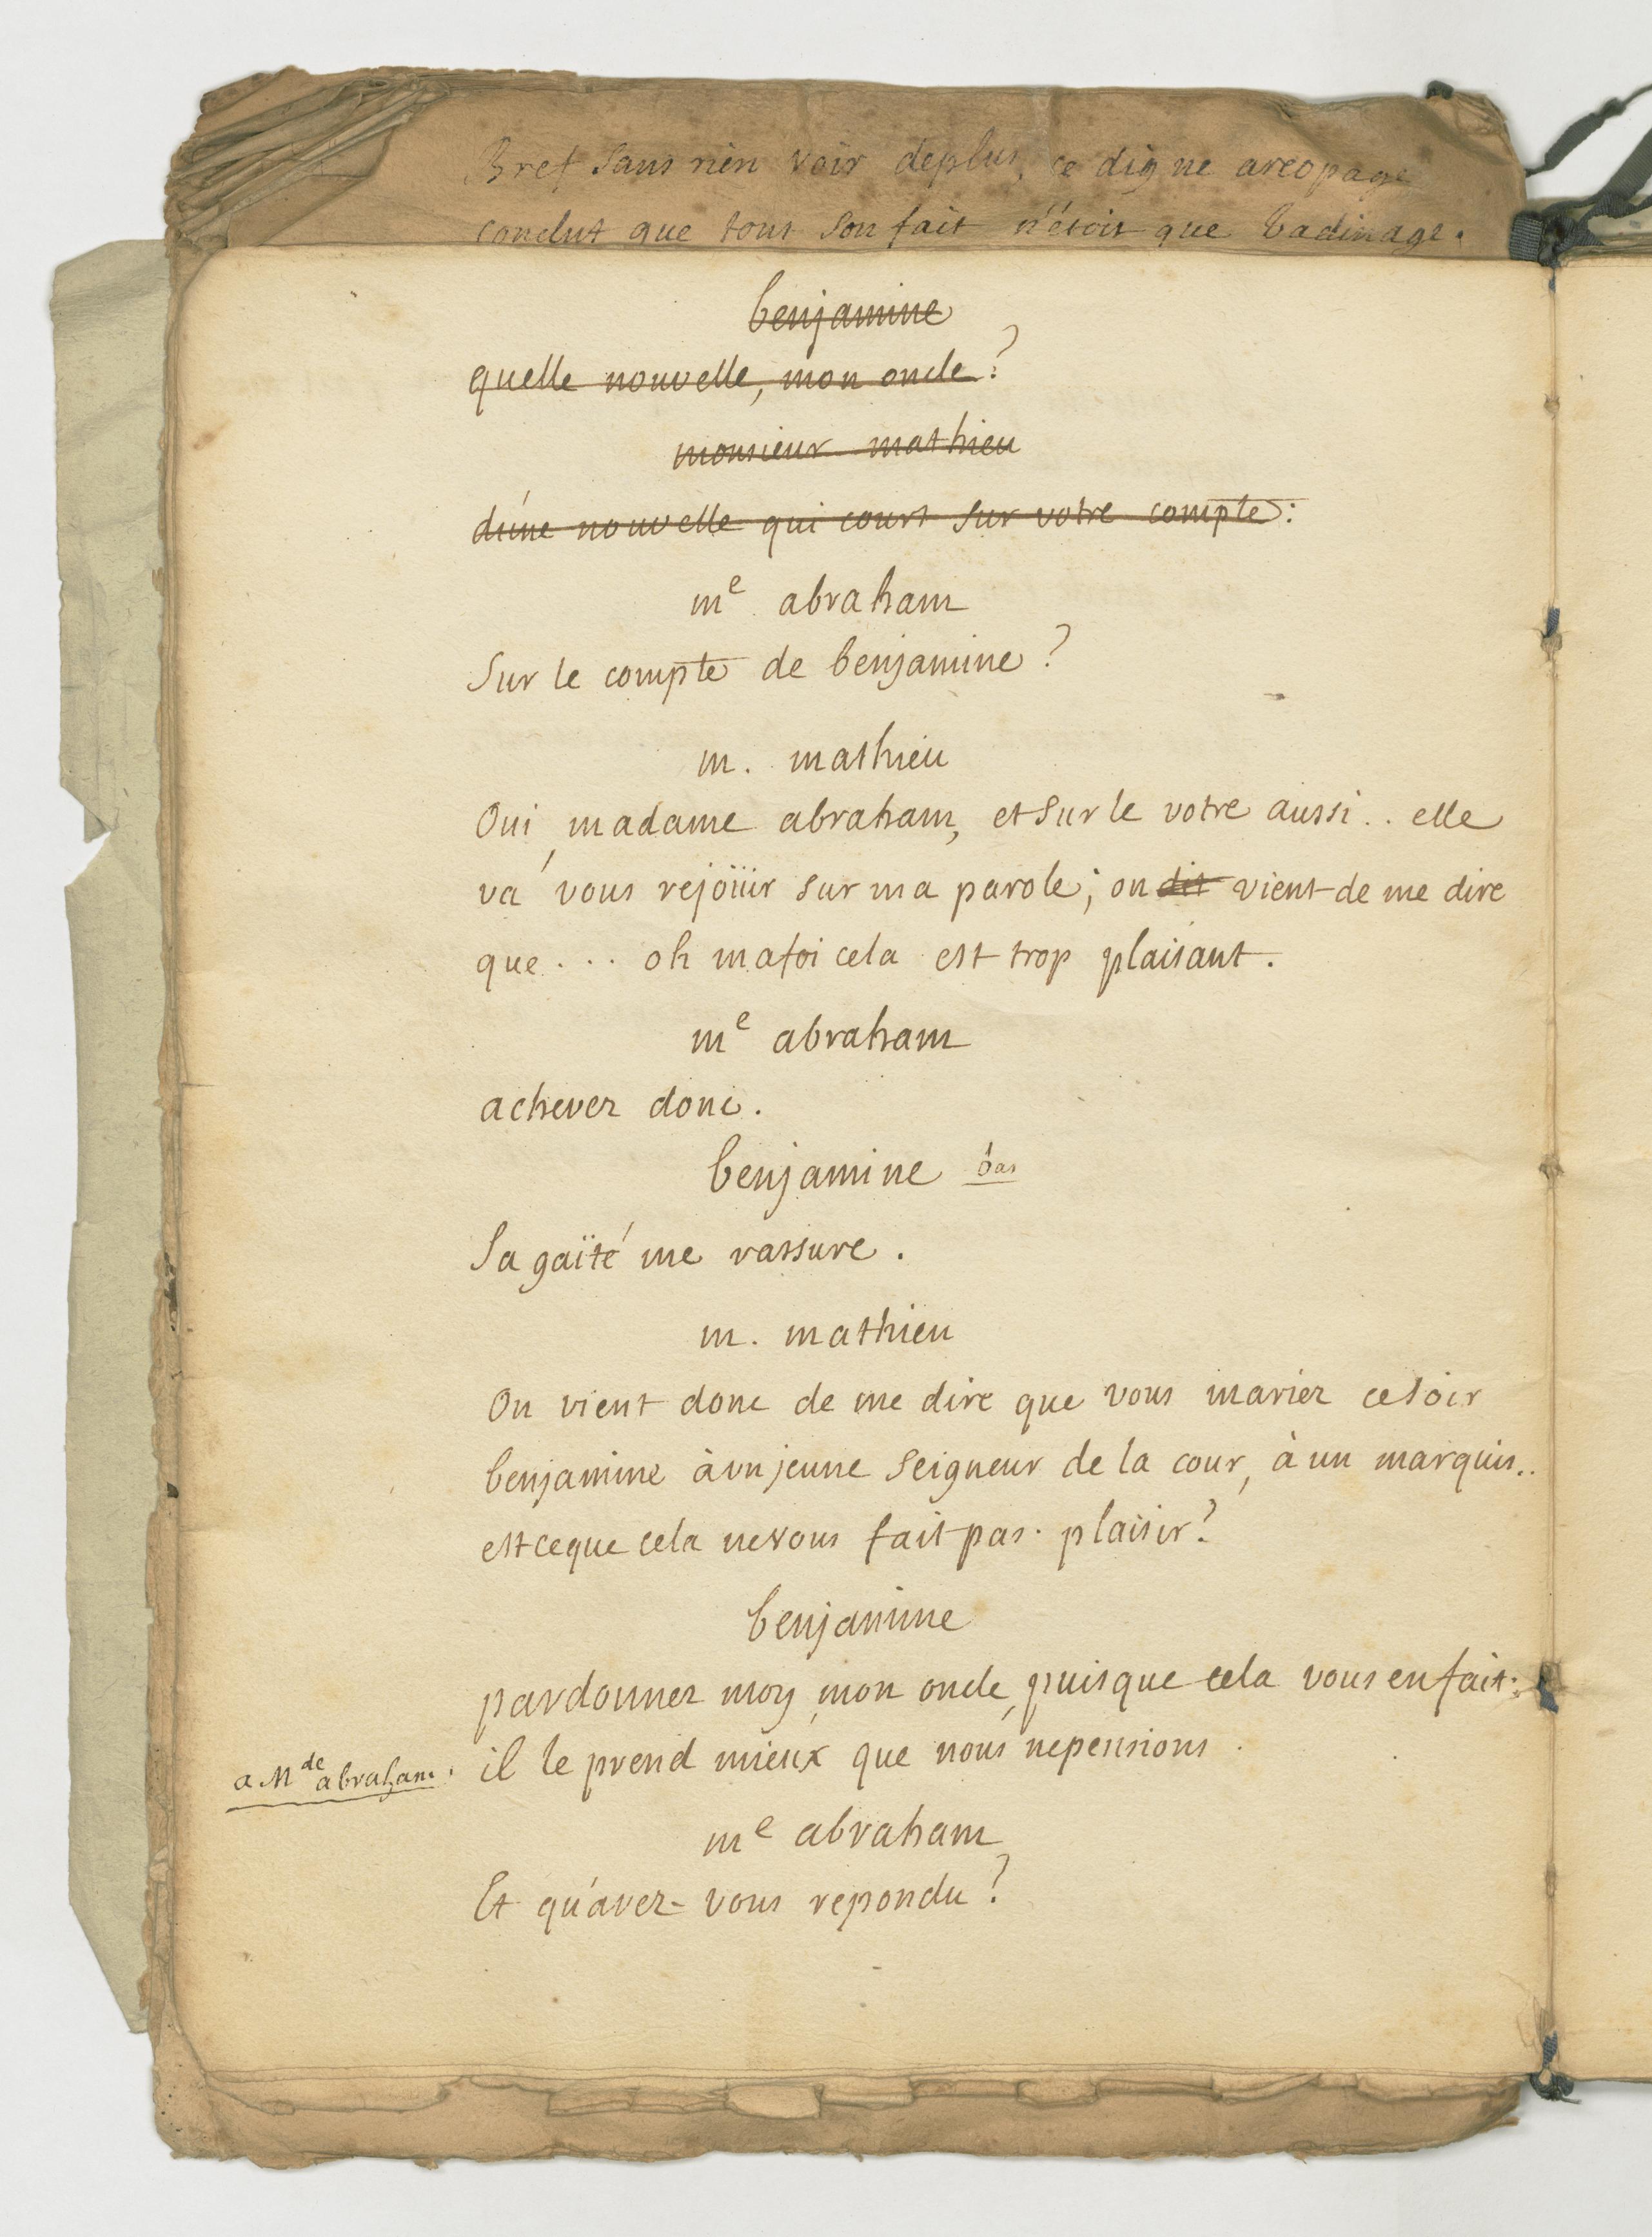 Bref sans rien voir deplus, ce digne areopage
conclut que tout son fait n'étoit que badinage.
benjamine
quelle nouvelle, mon oncle?
monsieur mathieu
d'une nouvelle qui court sur votre compte:
me abraham
Sur le compte de benjamine?
m. mathieu
Oui, madame abraham, et sur le votre aussi.. elle
va vous rejoüir sur ma parole; on dit vient de me dire
que.... oh mafoi cela est trop plaisant.
me abraham
achever donc.
benjamine bas
Sa gaïté me rassure.
m. mathieu
On vient donc de me dire que vous mariez cesoir
benjamine àun jeune seigneur de la cour, à un marquis..
estceque cela nevous fait pas. plaisir?
benjamine
pardonnez moy, mon oncle, puisque cela vous en fait:
a Mde abraham. il le prend mieux que nous nepensions.
me abraham
Et qu'avez-vous repondu?